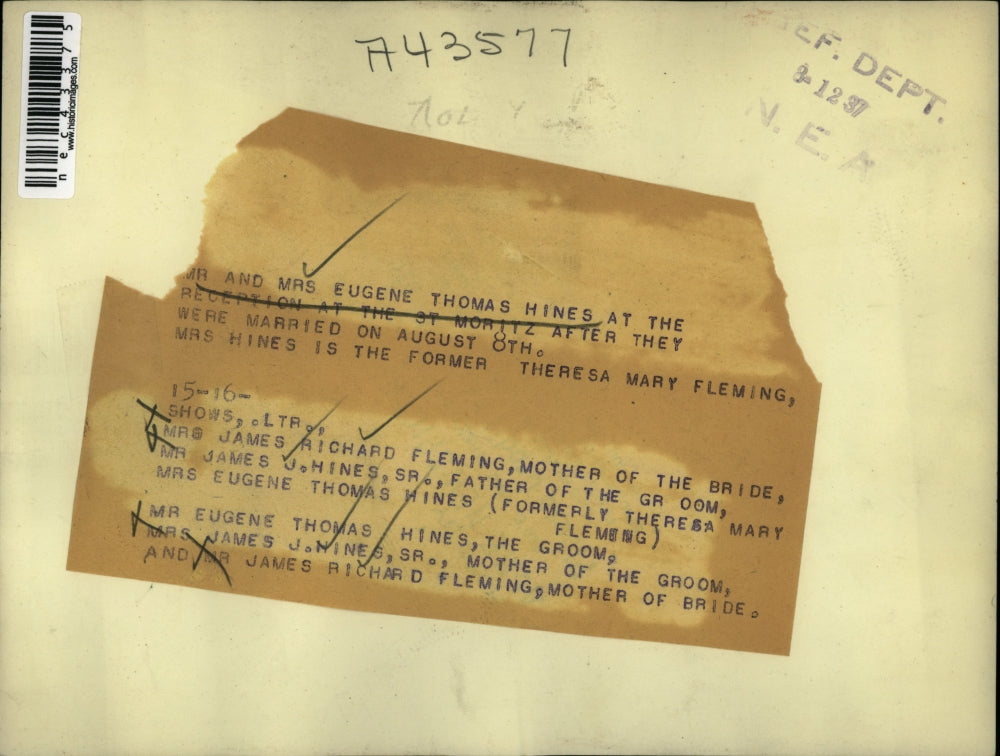 A43577
REF. DEPT.
8-12 37
N. E. A
nec43375
www.historicimages.com
MR AND MRS EUGENE THOMAS HINES AT THE
RECEPTION AT THE ST MORITZ AFTER THEY
WERE MARRIED ON AUGUST 8TH.
MRS HINES IS THE FORMER THERESA MARY FLEMING,
15-16-
SHOWS,.LTR.,
MRS JAMES RICHARD FLEMING,MOTHER OF THE BRIDE,
MR JAMES J.HINES,SR.,FATHER OF THE GR OOM,
MRS EUGENE THOMAS HINES (FORMERLY THERESA MARY
FLEMING)
MR EUGENE THOMAS HINES,THE GROOM,
MRS JAMES J.HINES,SR., MOTHER OF THE GROOM,
AND MR JAMES RICHARD FLEMING,MOTHER OF BRIDE.